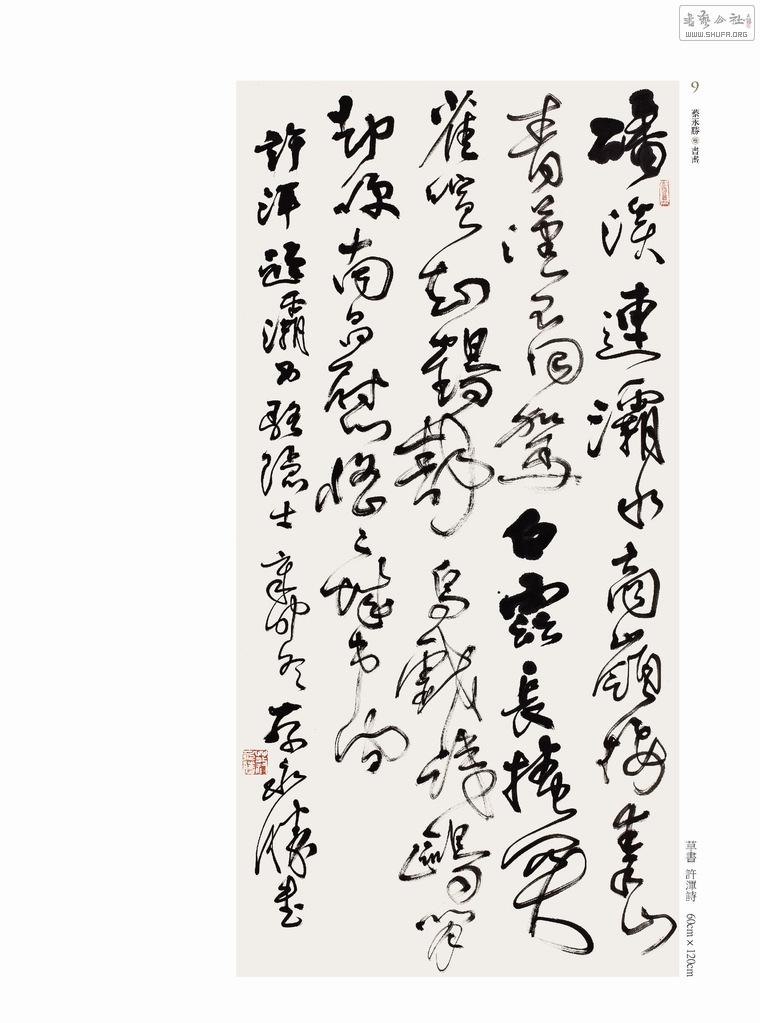 書藝公社
WWW.SHUFA.ORG
9
蔡永勝 書畫
磻溪連灞水商嶺接秦山
青漢不回駕白雲長掩關
雀喧知鶴靜鳧戲識鷗閒
却南昌尉悠悠城市間
許渾題灞西駱隱士 辛卯冬 蔡永勝書
草書 許渾詩 60cm×120cm